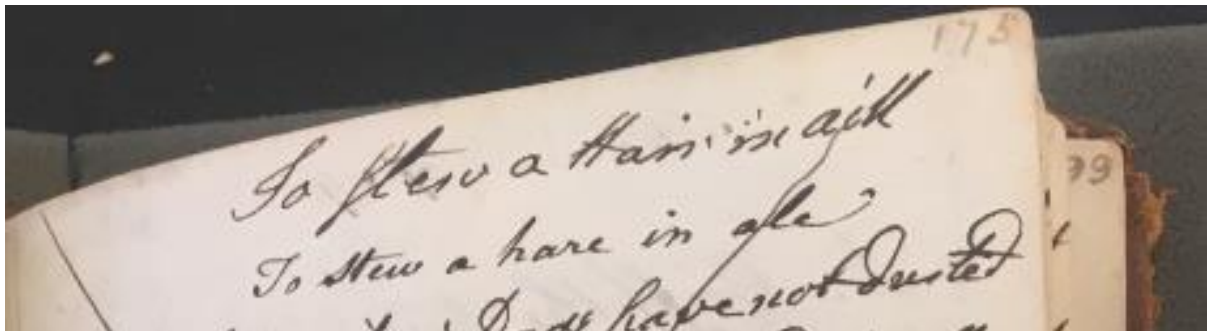 175
To stew a Hair in aill
To stew a hare in ale
99
have not dusted